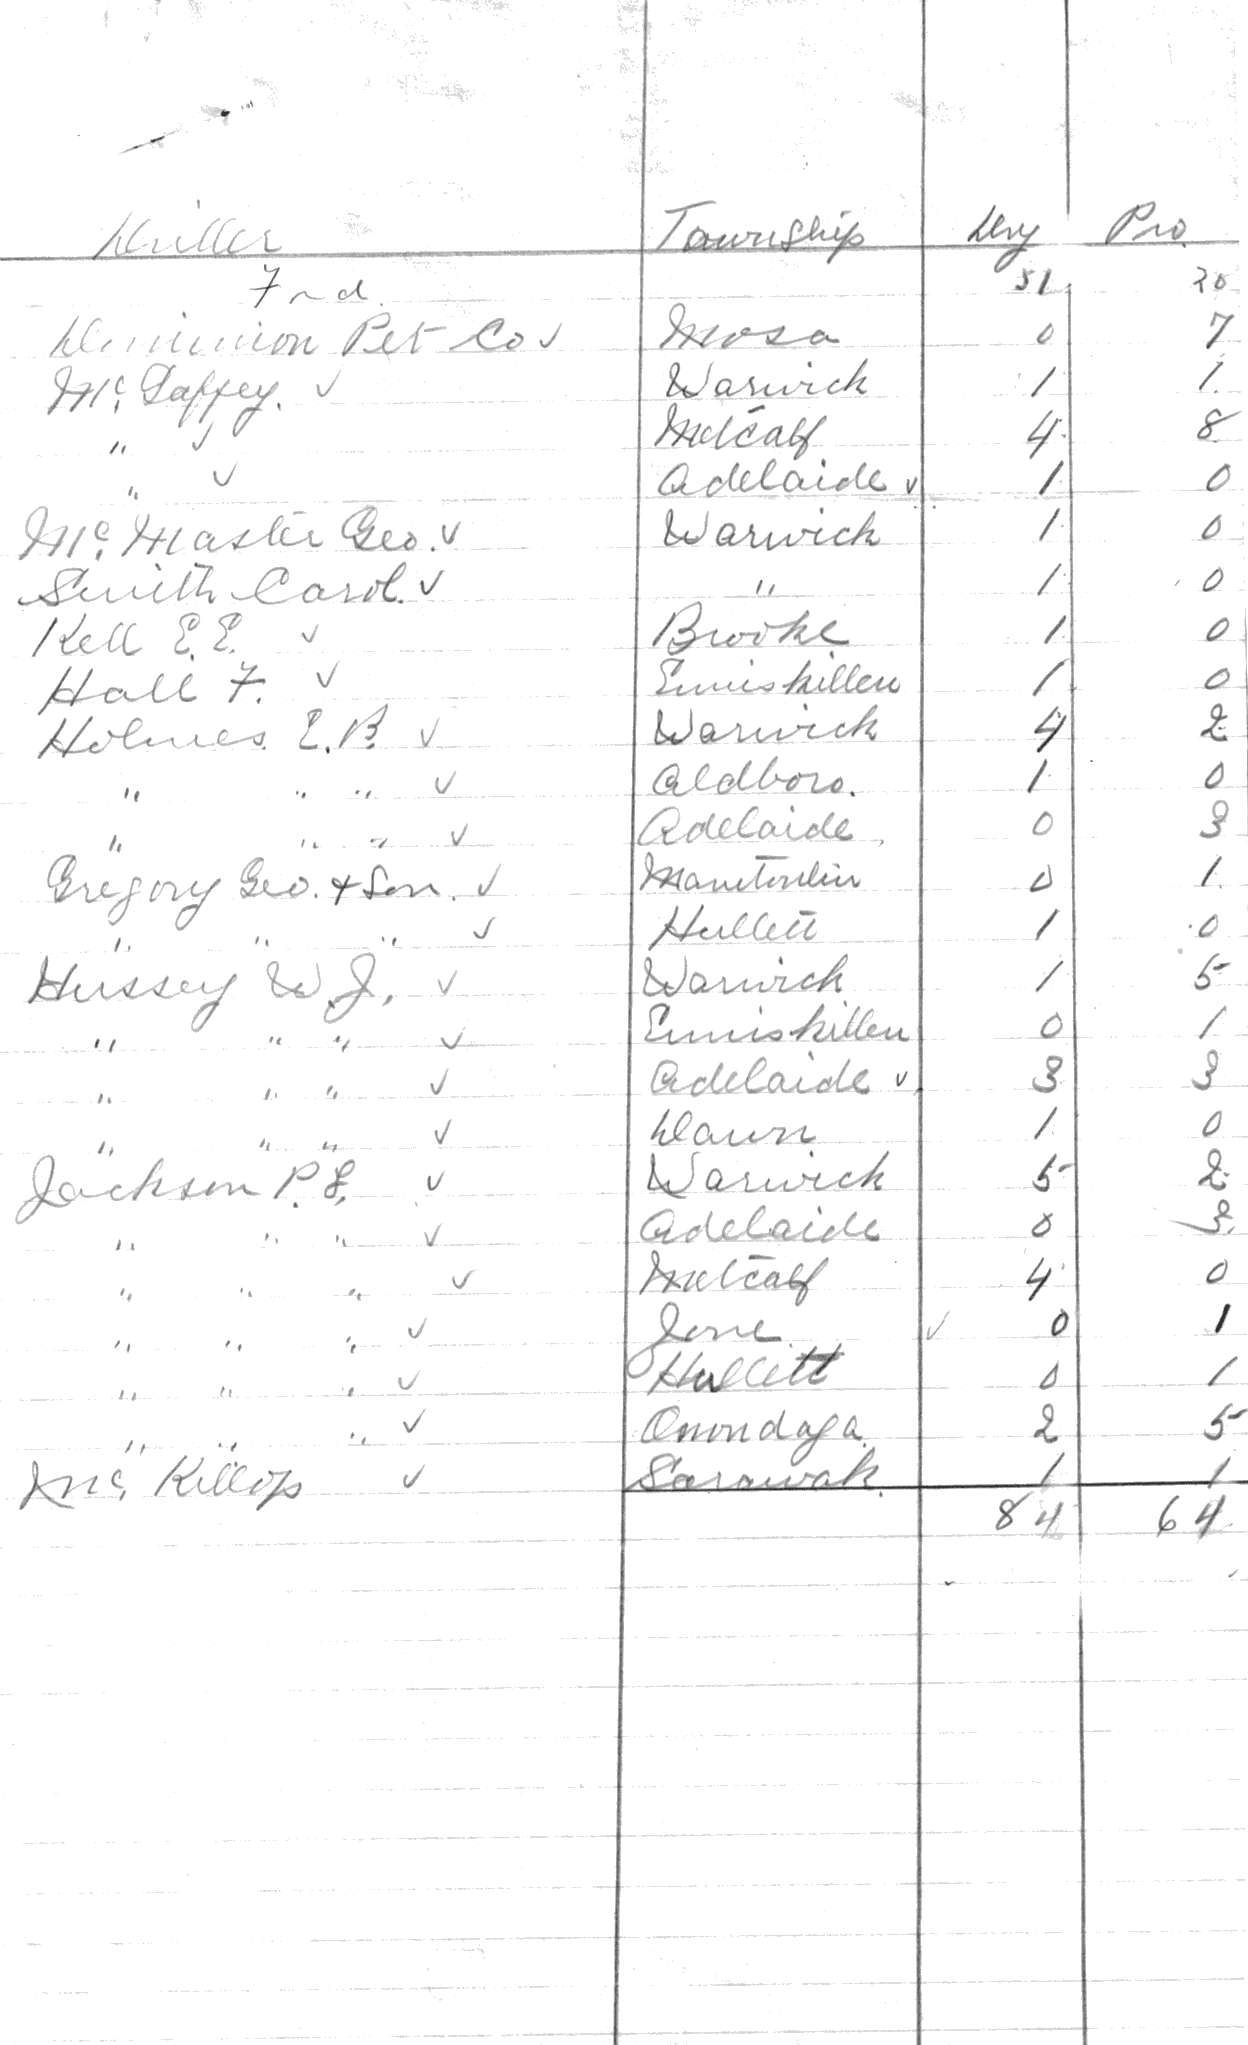 Driller Township Dry Pro.
Fwd. 51 20
Dominion Pet Co ✓ Mosa 0 7
Mc Gaffey. ✓ Warwick 1 1
" ✓ Metcalf 4 8
" ✓ Adelaide ✓ 1 0
Mc Master Geo. ✓ Warwick 1 0
Smith Carol. ✓ " 1 0
Kell E.E. ✓ Brooke 1 0
Hall F. ✓ Enniskillen 1 0
Holmes E.B. ✓ Warwick 4 2
" " " ✓ Aldboro. 1 0
" " " ✓ Adelaide 0 3
Gregory Geo. + Son. ✓ Manitoulin 0 1
" " " ✓ Hullett 1 0
Hussey W.J. ✓ Warwick 1 5
" " " ✓ Enniskillen 0 1
" " " ✓ Adelaide ✓ 3 3
" " " ✓ Dawn 1 0
Jackson P.L. ✓ Warwick 5 2
" " " ✓ Adelaide 0 3
" " " ✓ Metcalf 4 0
" " " ✓ Zone ✓ 0 1
" " " ✓ Hullett 0 1
" " " ✓ Onondaga 2 5
Mc Killop ✓ Sarawak 1 1
84 64